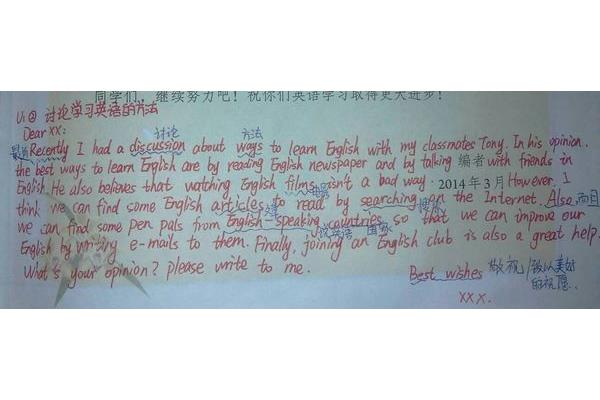 同学们, 继续努力吧! 祝你们英语学习取得更大进步!
U1② 讨论学习英语的方法
Dear XX:
讨论 方法
最近 Recently I had a discussion about ways to learn English with my classmates Tony. In his opinion.
the best ways to learn English are by reading English newspaper and by talking 编者 with friends in
English. He also believes that wathing English films isn't a bad way. 2014年3月 However, I
think we can find some English articles to read by searching on the Internet. Also, 而且
文章
we can find some pen pals from English-speaking countries so that we can improve our
说英语 国家
English by writing e-mails to them. Finally, joining an English club is also a great help.
What's your opinion? please write to me.
Best wishes 敬祝/致以美好
的祝愿.
XXX.